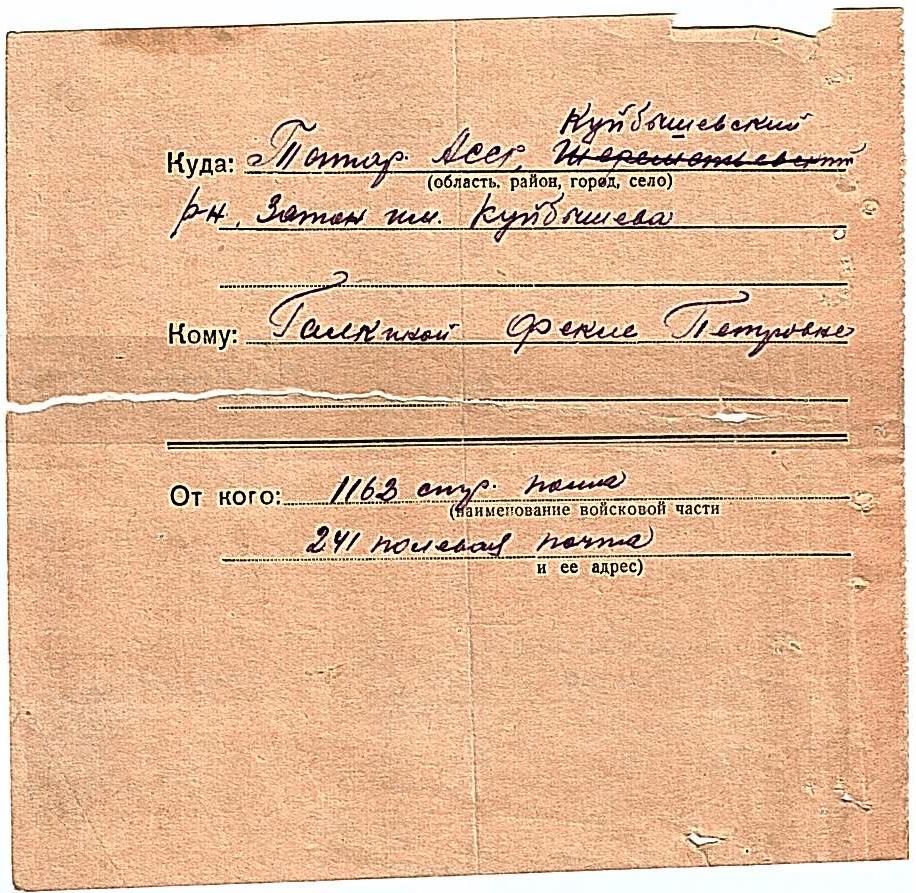 Куйбышевский
Куда: Татар. Асср, Шереметьевский
(область, район, город, село)
р-н, Затон им. Куйбышева
Кому: Галкиной Фекле Петровне
От кого: 1163 стр. полка
(наименование войсковой части
241 полевая почта
и ее адрес)